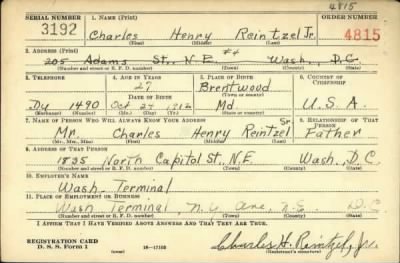 4815
SERIAL NUMBER 1. NAME (Print) ORDER NUMBER
3192 Charles Henry Reintzel Jr. 4815
(First) (Middle) (Last)
2. ADDRESS (Print)
205 Adams St., N.E. #4 Wash., D.C.
(Number and street or R. F. D. number) (Town) (County) (State)
3. TELEPHONE 4. AGE IN YEARS 5. PLACE OF BIRTH 6. COUNTRY OF CITIZENSHIP
27 Brentwood
DATE OF BIRTH (Town or county)
Du 1490 Oct 27 1912 Md U.S.A.
(Exchange) (Number) (Mo.) (Day) (Yr.) (State or country)
7. NAME OF PERSON WHO WILL ALWAYS KNOW YOUR ADDRESS 8. RELATIONSHIP OF THAT PERSON
Mr. Charles Henry Reintzel Sr Father
(Mr., Mrs., Miss) (First) (Middle) (Last)
9. ADDRESS OF THAT PERSON
1835 North Capitol St., N.E. Wash., D.C.
(Number and street or R. F. D. number) (Town) (County) (State)
10. EMPLOYER'S NAME
Wash. Terminal
11. PLACE OF EMPLOYMENT OR BUSINESS
Wash Terminal, N.E. D.C.
(Number and street or R. F. D. number) (Town) (County) (State)
I AFFIRM THAT I HAVE VERIFIED ABOVE ANSWERS AND THAT THEY ARE TRUE.
REGISTRATION CARD
D. S. S. Form 1 16—17105 Charles H. Reintzel, Jr.
(Registrant's signature)